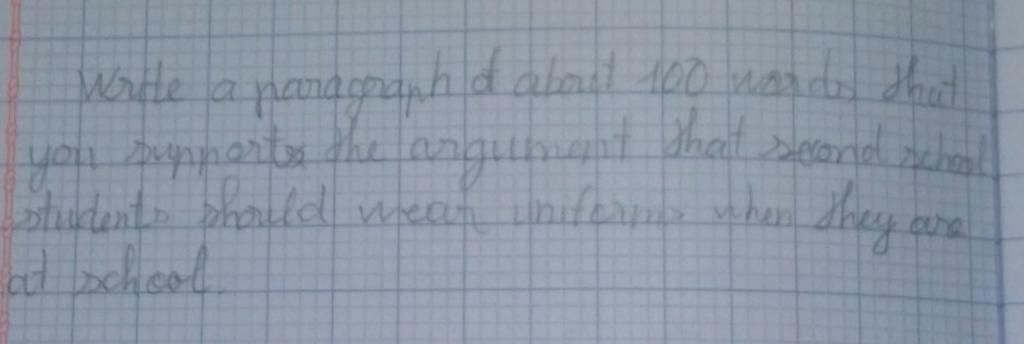 Write a paragraph of about 100 words that
you supports the argument that second school
students should wear uniforms when they are
at school.